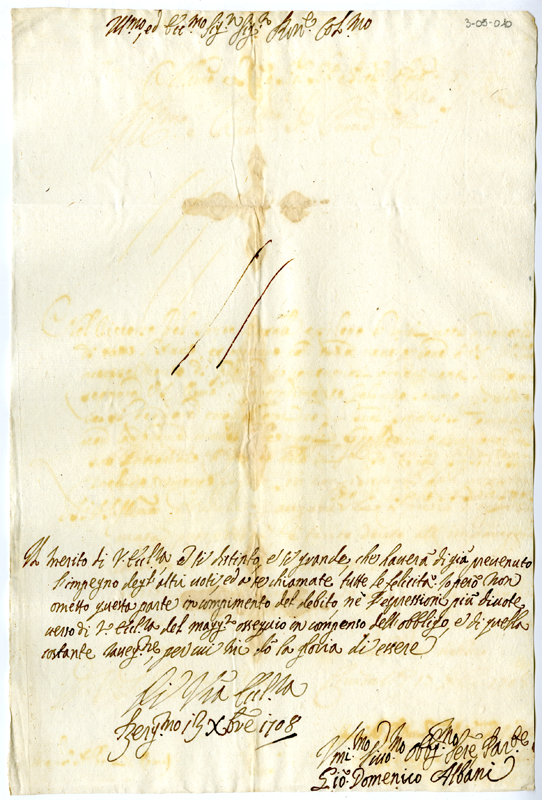 Ill.mo, ed Ecc.mo Sig.r Sig.r Pron.e Col.mo
3-05-010
Il merito di V. Ecc.lla è sì distinto, e sì grande, che haverà di già prevenuto
l'impegno degl'altri voti, ed a se chiamate tutte le felicità. Io però non
ometto questa parte in compimento del debito nè l'espressioni più divote
verso di V. Ecc.lla del magg.r ossequio in compenso dell'obbligo, e di questa
costante, per cui mi dò la gloria di essere
Di V'ra Ecc.lla
Berg.mo 19 Xbre 1708
Um.mo Div.mo Obblig.mo Ser.e
Gio. Domenico Albani